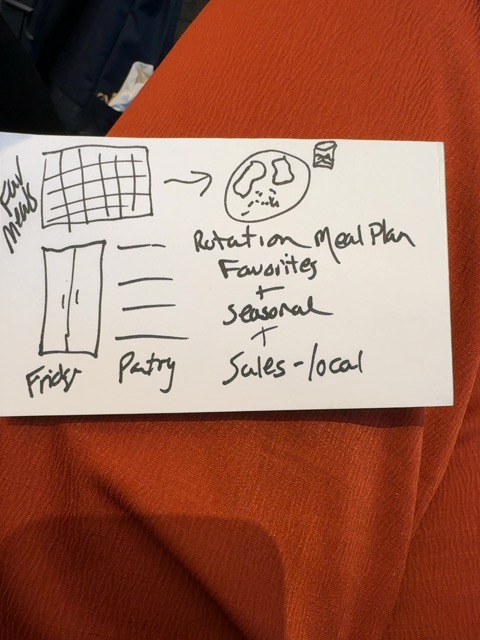 Fav
Meals
Rotation Meal Plan
Favorites
+
Seasonal
+
Sales-local
Fridge
Patry